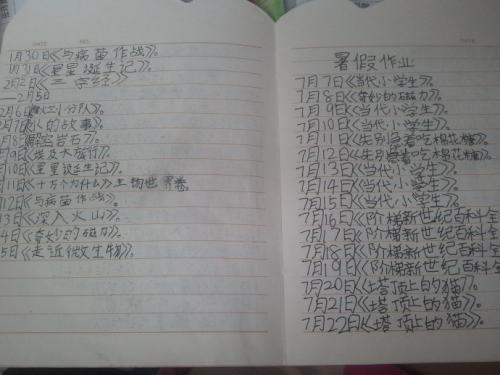 1月30日《与病菌作战》。
1月31日《星星诞生记》。
2月2日《三字经》
——2月5日
2月6日小分队》。
2月7日《心的故事》。
月8日岩石》。
月9日《埃及大旅行》。
月10日《星星诞生记》。
月11日《十万个为什么》生物世界卷。
月12日《与病菌作战》。
13日《深入火山》。
4日《奇妙的磁力》。
5日《走近微生物》。
暑假作业
7月7日《当代小学生》。
7月8日《奇妙的磁力》。
7月9日《当代小学生》。
7月10日《当代小学生》。
7月11日《先别急着吃棉花糖》。
7月12日《先别急着吃棉花糖》。
7月13日《当代小学生》。
7月14日《当代小学生》。
7月15日《当代小学生》。
7月16日《阶梯新世纪百科全
7月17日《阶梯新世纪百科全
7月18日《阶梯新世纪百科全
7月19日《阶梯新世纪百科全
7月20日《塔顶上的猫》。
7月21日《塔顶上的猫》。
7月22日《塔顶上的猫》。